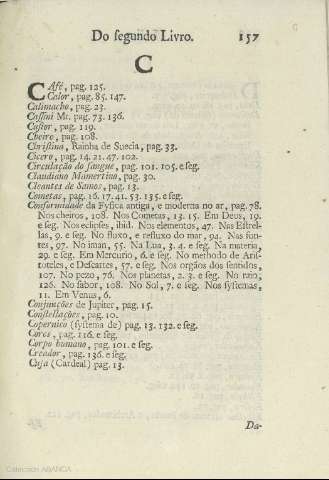 Do segundo Livro. 157
C
CAfé, pag. 125.
Calor, pag. 85. 147.
Calimacho, pag. 23.
Cassini Mr. pag. 73. 136.
Castor, pag. 119.
Cheiro, pag. 108.
Christina, Rainha de Suecia, pag. 33.
Cicero, pag. 14. 21. 47. 102.
Circulação do sangue, pag. 101. 105. e seg.
Claudiano Mamertino, pag. 30.
Cleantes de Samos, pag. 13.
Cometas, pag. 16. 17. 41. 53. 135. e seg.
Conformidade da Fysica antiga, e moderna no ar, pag. 78.
Nos cheiros, 108. Nos Cometas, 13. 15. Em Deus, 19.
e seg. Nos eclipses, ibid. Nos elementos, 47. Nas Estrel-
las, 9. e seg. No fluxo, e refluxo do mar, 94. Nas fon-
tes, 97. No iman, 55. Na Lua, 3. 4. e seg. Na materia,
29. e seg. Em Mercurio, 6. e seg. No methodo de Aris-
toteles, e Descartes, 57. e seg. Nos orgãos dos sentidos,
107. No pezo, 76. Nos planetas, 2. 3. e seg. No raio,
126. No sabor, 108. No Sol, 7. e seg. Nos systemas,
11. Em Venus, 6.
Conjunções de Jupiter, pag. 15.
Constellações, pag. 10.
Copernico (systema de) pag. 13. 132. e seg.
Cores, pag. 116. e seg.
Corpo humano, pag. 101. e seg.
Creador, pag. 136. e seg.
Cusa (Cardeal) pag. 13.
Da-
Colección ABANCA